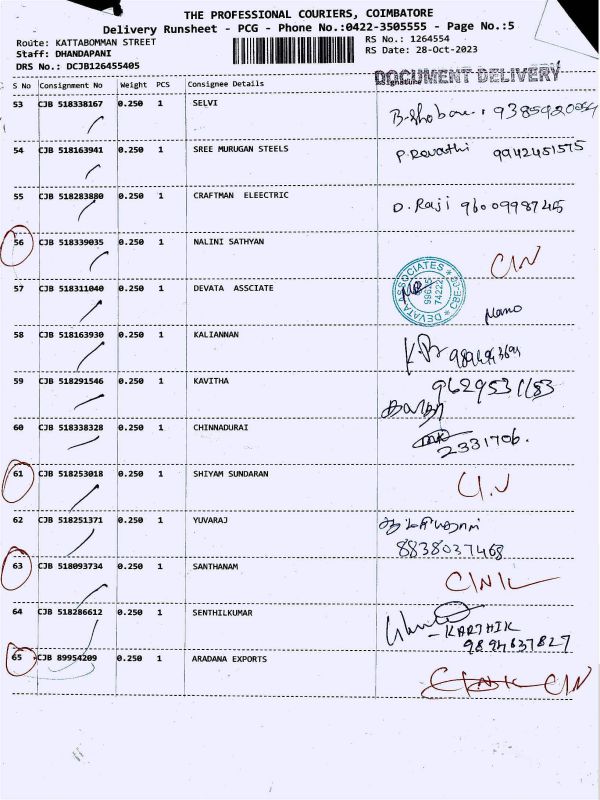 THE PROFESSIONAL COURIERS, COIMBATORE
Delivery Runsheet - PCG - Phone No.:0422-3505555 - Page No.:5
Route: KATTABOMMAN STREET RS No.: 1264554
Staff: DHANDAPANI RS Date: 28-Oct-2023
DRS No.: DCJB126455405
DOCUMENT DELIVERY
S No Consignment No Weight PCS Consignee Details Signature
53 CJB 518338167 0.250 1 SELVI
54 CJB 518163941 0.250 1 SREE MURUGAN STEELS P.Revathi 9942451575
55 CJB 518283880 0.250 1 CRAFTMAN ELEECTRIC D.Raji 9600998745
56 CJB 518339035 0.250 1 NALINI SATHYAN CIN
57 CJB 518311040 0.250 1 DEVATA ASSCIATE
DEVATA ASSOCIATES
Mano
58 CJB 518163930 0.250 1 KALIANNAN
59 CJB 518291546 0.250 1 KAVITHA 9629531183
60 CJB 518338328 0.250 1 CHINNADURAI
2331706.
61 CJB 518253018 0.250 1 SHIYAM SUNDARAN
62 CJB 518251371 0.250 1 YUVARAJ
8838037468
63 CJB 518093734 0.250 1 SANTHANAM
64 CJB 518286612 0.250 1 SENTHILKUMAR
KARTHIK
9894637827
65 CJB 89954209 0.250 1 ARADANA EXPORTS CIN